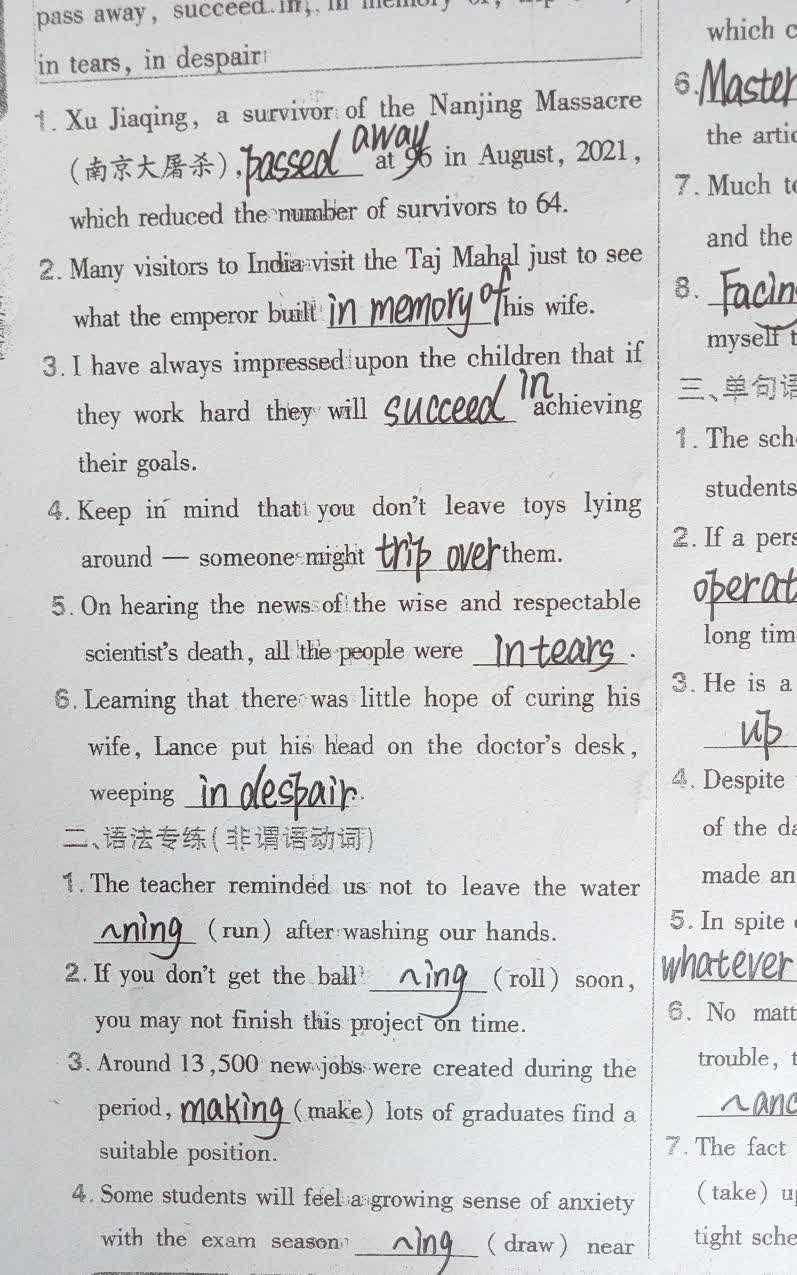 pass away, succeed in, in memory of,
in tears, in despair
1. Xu Jiaqing, a survivor of the Nanjing Massacre
(南京大屠杀), passed away at 96 in August, 2021,
which reduced the number of survivors to 64.
2. Many visitors to India visit the Taj Mahal just to see
what the emperor built in memory of his wife.
3. I have always impressed upon the children that if
they work hard they will succeed in achieving
their goals.
4. Keep in mind that you don't leave toys lying
around — someone might trip over them.
5. On hearing the news of the wise and respectable
scientist's death, all the people were in tears.
6. Learning that there was little hope of curing his
wife, Lance put his head on the doctor's desk,
weeping in despair.
二、语法专练(非谓语动词)
1. The teacher reminded us not to leave the water
~ning (run) after washing our hands.
2. If you don't get the ball ~ing (roll) soon,
you may not finish this project on time.
3. Around 13,500 new jobs were created during the
period, making (make) lots of graduates find a
suitable position.
4. Some students will feel a growing sense of anxiety
with the exam season ~ing (draw) near
which
6. Master
the
7. Much
and the
8. Facin
myself
三、单句
1. The
students
2. If a
operat
long
3. He is a
up
4. Despite
of the
made an
5. In spite
whatever
6. No
trouble,
~anc
7. The fact
(take)
tight